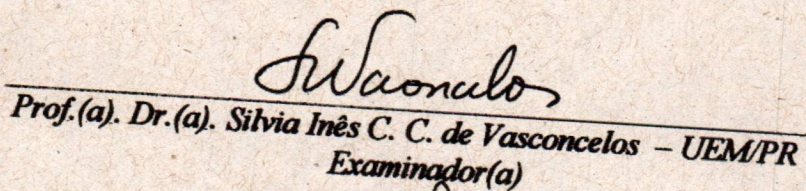 SVasconcelos
Prof.(a). Dr.(a). Silvia Inês C. C. de Vasconcelos – UEM/PR
Examinador(a)